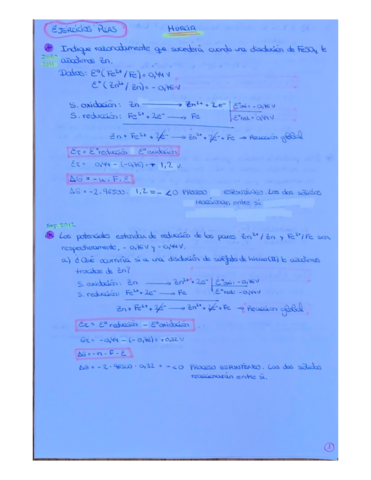 EJERCICIOS PILAS MURCIA
Indique razonadamente que sucederá cuando una disolución de FeSO4 le
añadimos Zn.
Datos: E°(Fe2+/Fe) = 0,44 V
E°(Zn2+/Zn) = -0,76 V
S. oxidación: Zn → Zn2+ + 2e-
S. reducción: Fe2+ + 2e- → Fe
Zn + Fe2+ + 2e- → Zn2+ + 2e- + Fe → Reacción global
Ec = E° reducción - E° oxidación
Ec = 0,44 - (-0,76) = 1,2
ΔG = -n · F · E
ΔG = -2 · 96500 · 1,2 = - <0 PROCESO ESPONTÁNEO. Los dos sólidos
reaccionan entre sí.
Sep 2012
Los potenciales estándar de reducción de los pares Zn2+/Zn y Fe2+/Fe son
respectivamente, -0,76 V y -0,44 V.
a) ¿Qué ocurriría si a una disolución de sulfato de hierro(II) le añadimos
trocitos de Zn?
S. oxidación: Zn → Zn2+ + 2e-
S. reducción: Fe2+ + 2e- → Fe
Zn + Fe2+ + 2e- → Zn2+ + 2e- + Fe → Reacción global
Ec = E° reducción - E° oxidación
Ec = -0,44 - (-0,76) = +0,32 V
ΔG = -n · F · E
ΔG = -2 · 96500 · 0,32 = - <0 PROCESO ESPONTÁNEO. Los dos sólidos
reaccionarán entre sí.
1